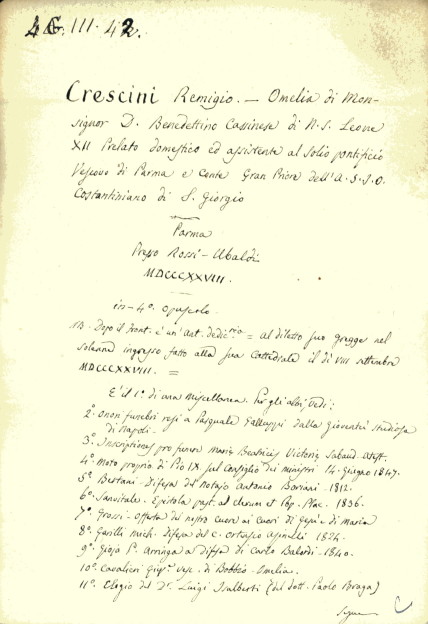 4G. III. 42.
Crescini Remigio. — Omelia di Mon-
signor D. Benedettino Cassinese di N. S. Leone
XII Prelato domestico ed assistente al Solio pontificio
Vescovo di Parma e Conte Gran Priore dell'A. I. S. O.
Costantiniano di S. Giorgio
Parma
Presso Rossi-Ubaldi
MDCCCXXVIII.
in-4º. Opuscolo.
NB. Dopo il front. è un' ant. dedic.rio = al diletto suo gregge nel
solenne ingresso fatto alla sua Cattedrale il dì VIII settembre
MDCCCXXVIII. =
È il 1º. di una Miscellanea. Per gli altri, vedi:
2º. Onori funebri resi a Pasquale Galluppi dalla Gioventù studiosa
di Napoli.
3º. Inscriptiones pro funere Mariae Beatricis Victoriae Sabaud.
4º. Moto proprio di Pio IX sul Consiglio dei ministri 14. Giugno 1847.
5º. Bertani - Difesa del notajo Antonio Boriani - 1812.
6º. Sanvitale. Epistola past. ad clerum et Pop. Plac. 1836.
7º. Grossi - Offerta del nostro cuore ai cuori di Gesù e di Maria
8º. Garilli Mich. Difesa del C. Ortasio Asinelli 1824.
9º. Gioja P. Arringa a difesa di Carlo Balordi - 1840.
10º. Cavalieri Gius. Vesc. di Bobbio - Omelia.
11º. Elogio del Dr. Luigi Isalberti (del Dott. Paolo Braga)
Segue